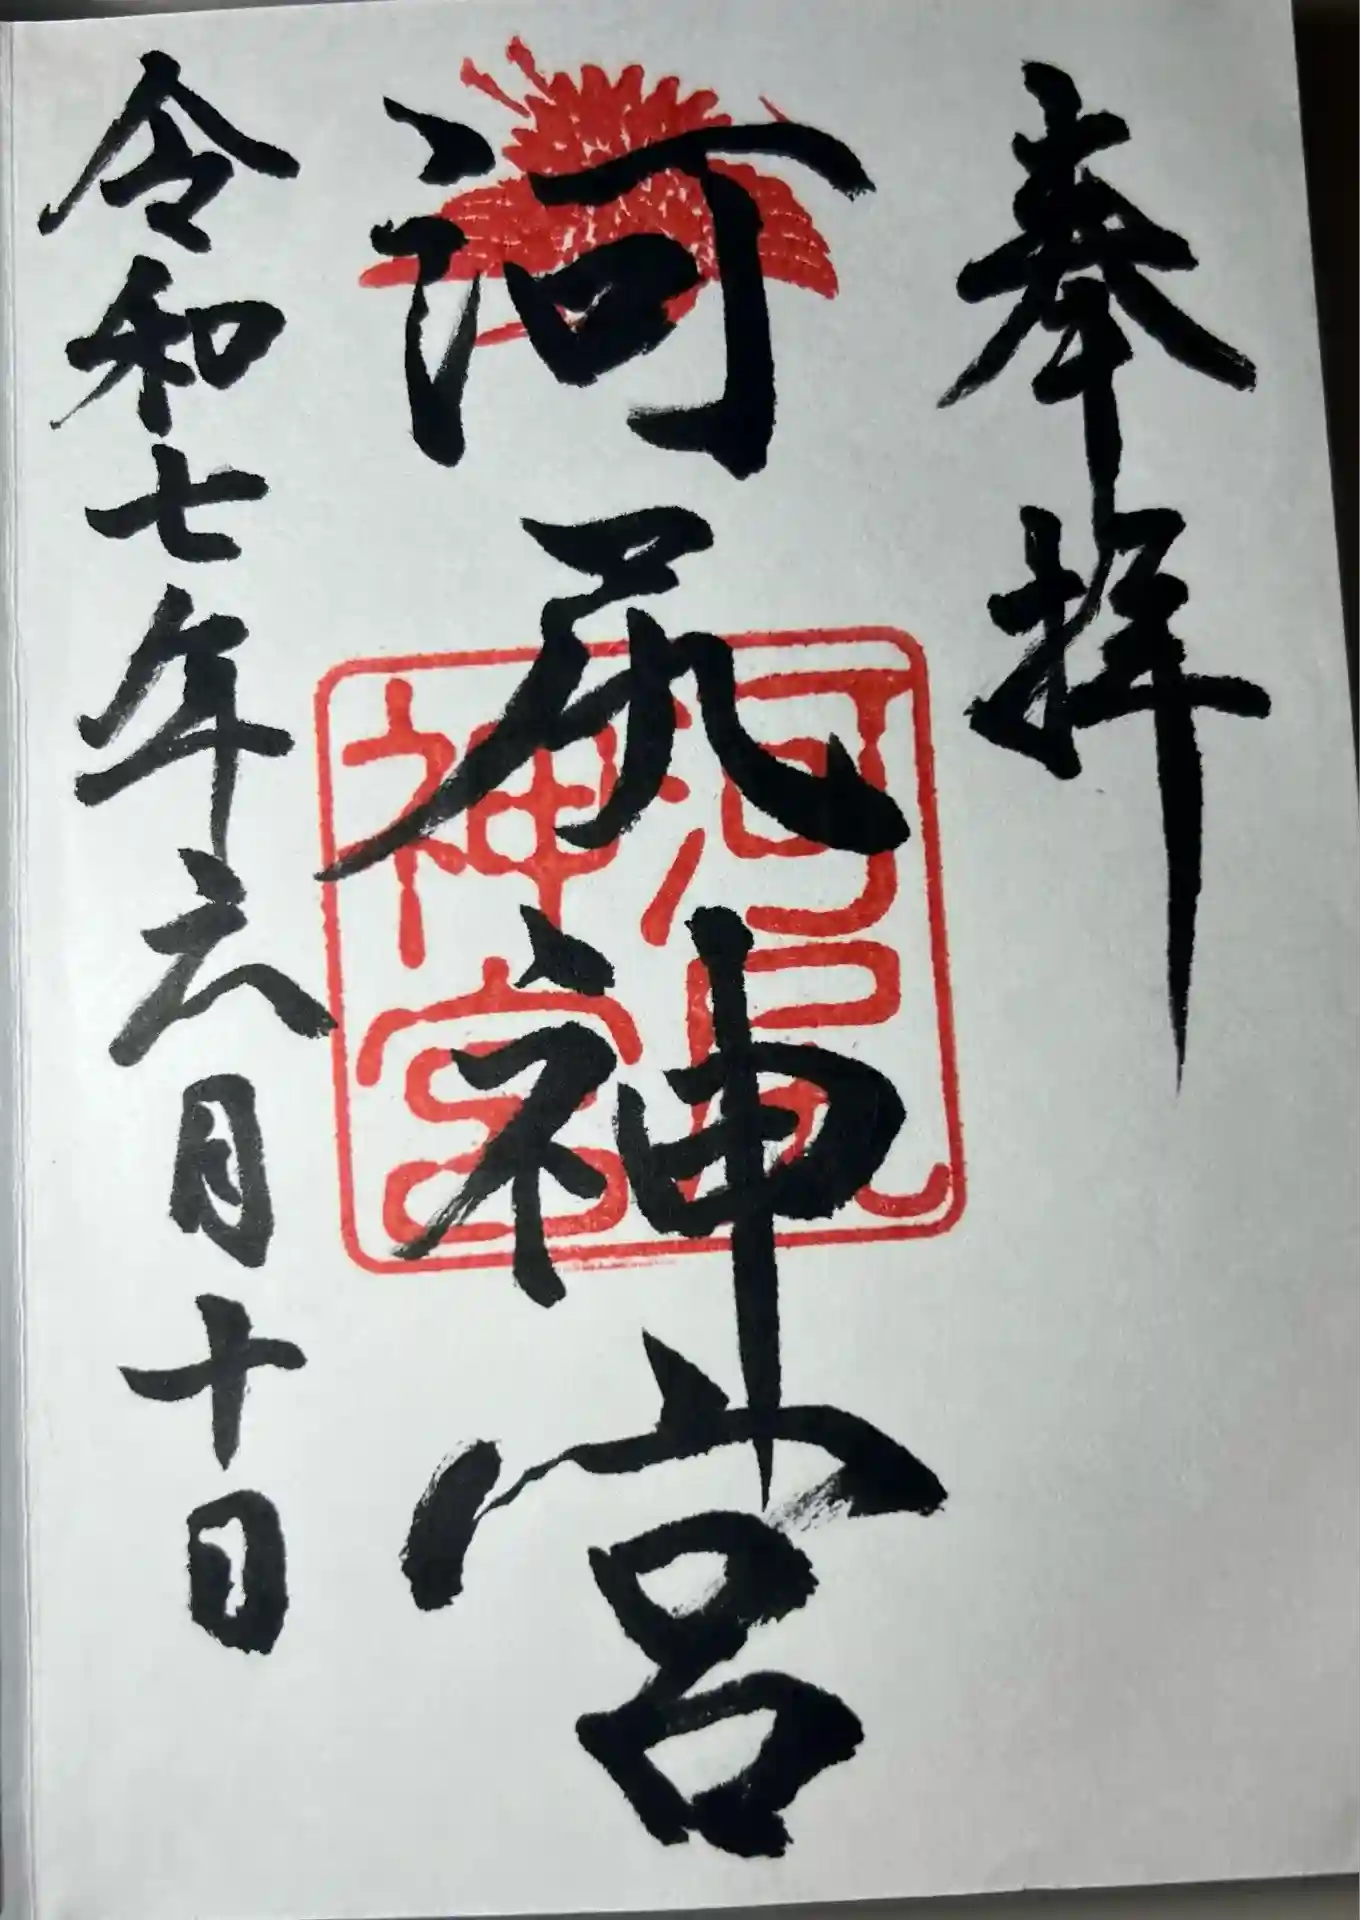 奉拝
河尻神宮
河尻
神宮
令和七年六月十日